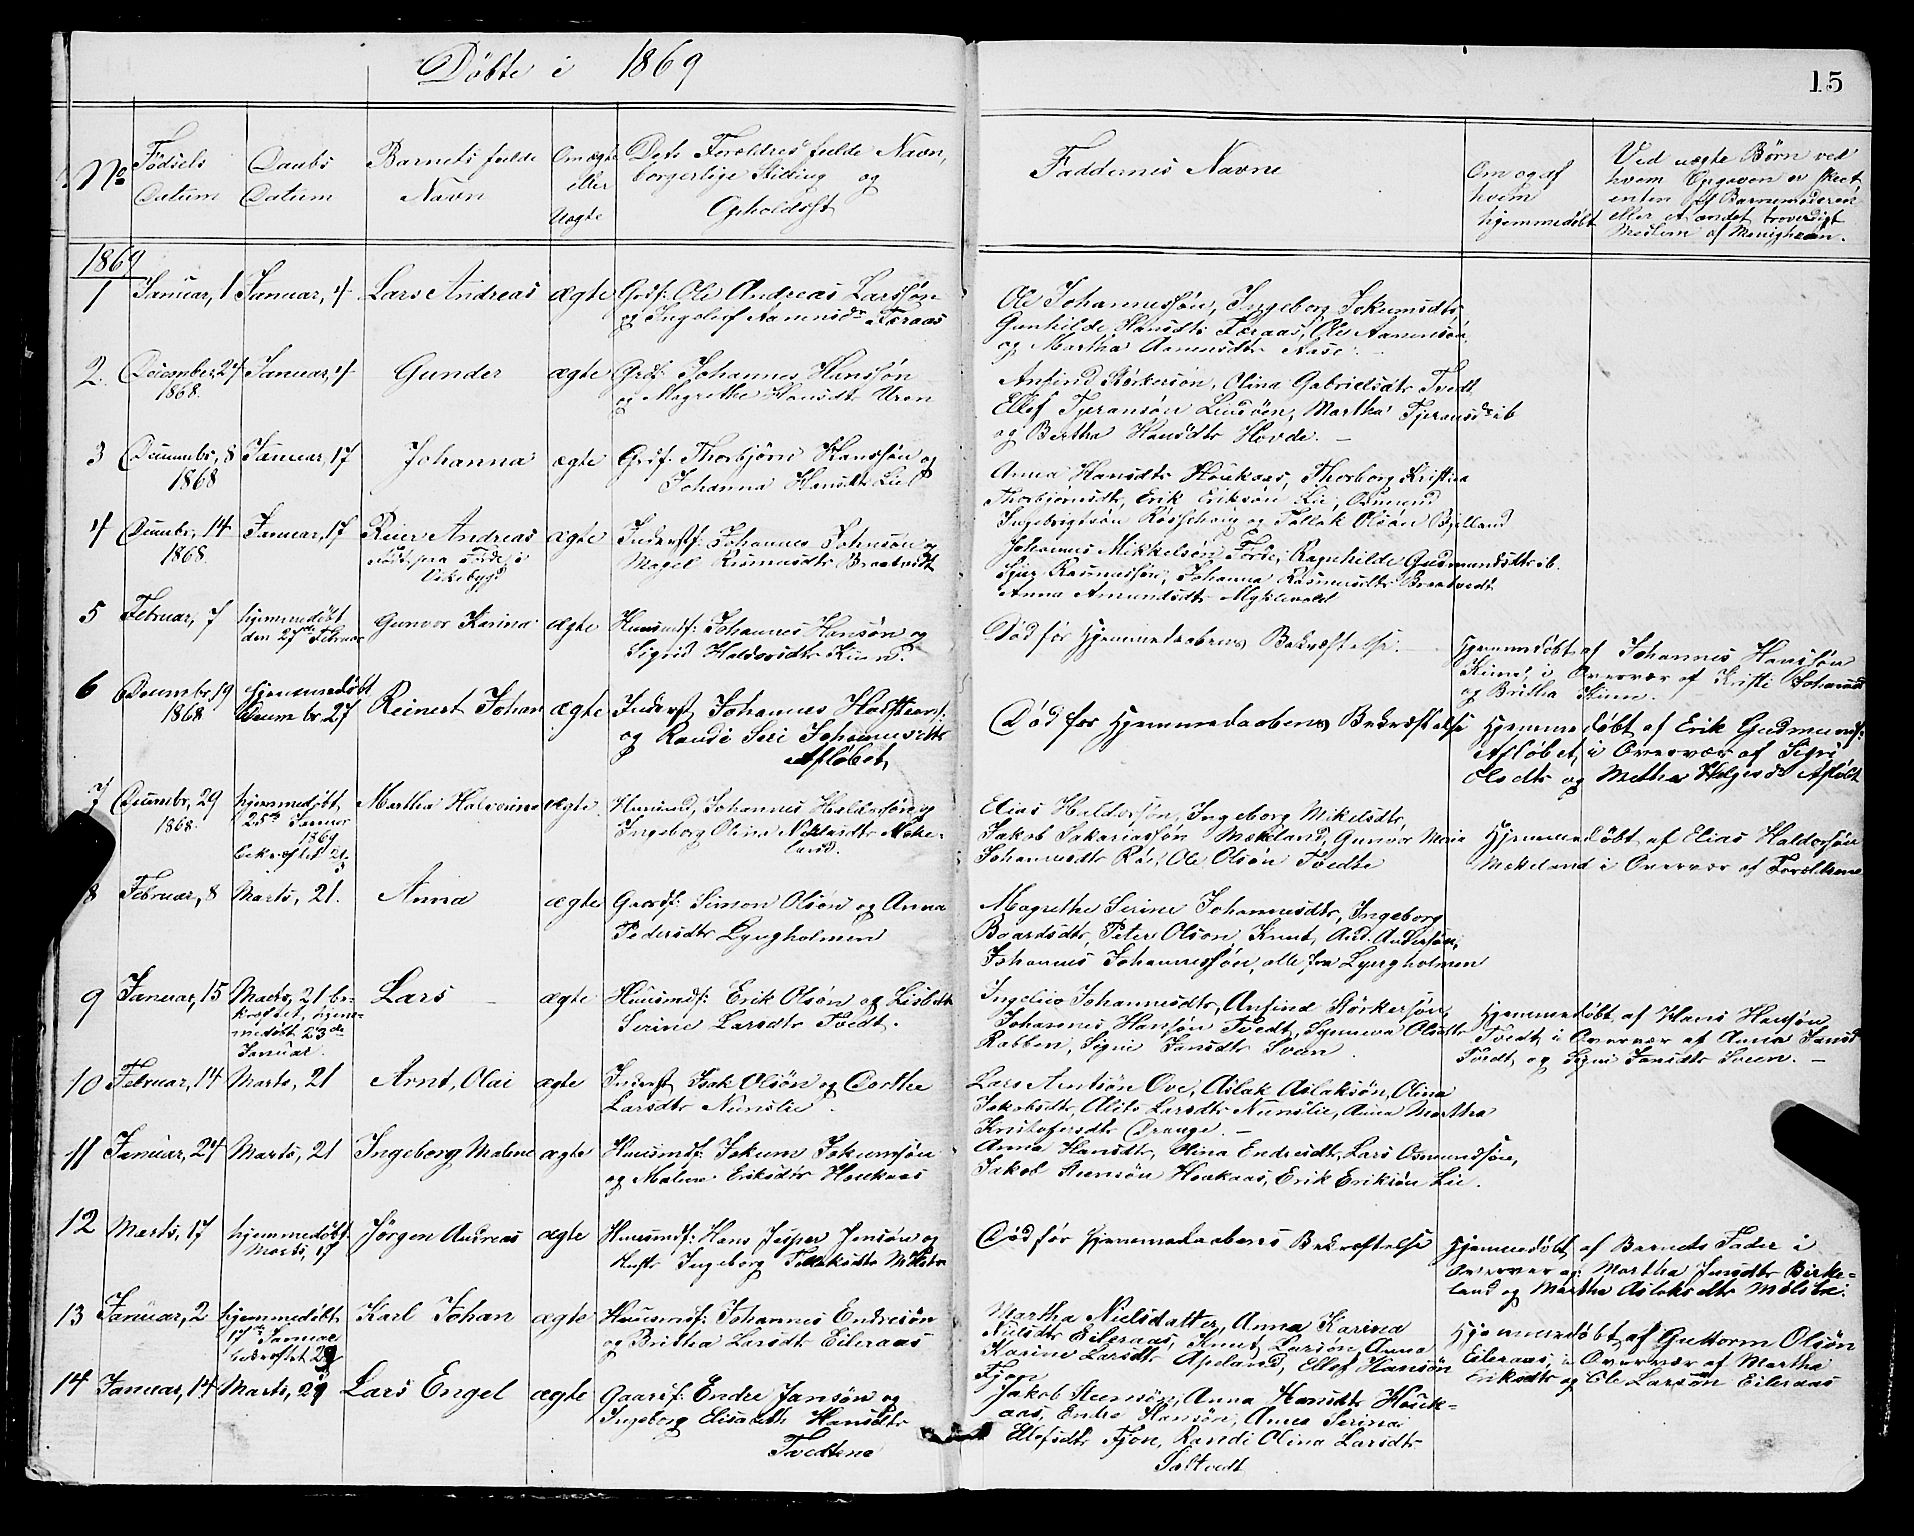 Döbte i 1869
15
No
Födsels Datum
Daabs Datum
Barnets fulde Navn
Om ægte eller Uægte
Dets Forældres fulde Navn, borgerlige Stilling og Opholdsst
Faddernes Navne
Om og af hvem hjemmedöbt
Ved uægte Börn ved
hvem Opgaven er skeet
enten af Barnemoderen
eller et andet troverdigt
Medlem af Menigheden.
1869
1 Januar, 1 Januar, 4 Lars Andreas ægte Grdf: Ole Andreas Larssön
og Ingeleif Aamunsdr Færaas
Ole Johannessön, Ingeborg Jokumsdtr,
Gunhilde Hansdtr Færaas, Ole Aamunsön
og Martha Aamunsdtr Aase. —
2. December, 27 1868. Januar, 4 Gunder ægte Grdf: Johannes Hanssön
og Magrethe Hansdtr Uren
Anfind Störkersön, Olina Gabrielsdtr Tvedt
Ellef Tjeransön Lindöen, Martha Tjeransdtr ib
og Bertha Hansdtr Hovde. —
3 Decembr, 8 1868 Januar, 17 Johanna ægte Grdf: Thorbjörn Hanssön og
Johanna Hansdtr Lie
Anna Hansdtr Houkaas, Thorborg Kristina
Thorbjörnsdtr, Erik Eriksön Lie, Osmund
Ingebrigtsön Rösseheig og Tollak Olsön Bjelland
4 Decembr, 14 1868. Januar, 17 Reier Andreas
födt paa Förde i
Vikebygd
ægte Inderstf: Johannes Johnsön og
Magel Rasmusdtr Braatvedt
Johannes Mikkelsen Förde, Ragnhilde Gudmundsdtr ib.
Sjur Rasmussön, Johanna Rasmusdtr Braatvedt
Anna Amundsdtr Myklevold
5 Februar, 7 hjemmedöbt
den 27de Februar
Gunvor Karina ægte Huusmdf: Johannes Hansön og
Sigrid Haldorsdtr Kiin.
Död för Hjemmedaabens Bekræftelse. —
Hjemmedöbt af Johannes Hanssön
i Overvær af Kristi
og Britha
6 Decembr, 19 1868 hjemmedöbt
Decembr 27
Reinert Johan ægte Inderst, Johannes
og Randi Seri Johannesdtr
Aflöbet,
Död for Hjemmedaabens Bekræftelse
Hjemmedöbt af Erik Gudmunds:
Aflöbet, i Overvær af Siri
Olsdtr og Metha Helgesdr Aflöbt
7 Decembr, 29 1868. hjemmedöbt
25de Januar
1869
bekræftet 21/3
Martha Halvorina ægte. Huusmd, Johannes Haldorsön og
Ingeborg Olina Mæke-
land.
Elias Haldorsön, Ingeborg Mikelsdtr,
Jakob Sakariassön Mækeland, Gunvor Maria
Johannesdtr Röe, Ole Olsön Tvedte
Hjemmedöbt af Elias Haldorsön
Mækeland i Overvær af Forældrene
8 Februar, 8 Marts, 21. Anna ægte Gaardf: Simon Olsön og Anna
Pedersdtr Lyngholmen
Magrethe Serine Johannesdtr, Ingeborg
Baardsdtr, Peter Olson, Knut And. Andersön,
Johannes Johannessön, alle fra Lyngholmen
9 Januar, 15 Marts, 21 be-
kræftet, hjem-
medöbt 23de
Januar.
Lars — ægte Huusmdf: Erik Olsön og Lisbeth
Serine Larsdtr Tvedt.
Johannesdtr, Anfind Störkersön,
Johannes Hansön Tvedt, Synneva Olsdtr
Rabben, Signi Jansdtr Sveen
Hjemmedöbt af Hans Hansön
Tvedt, i Overvær af Anna Jansd
Tvedt og Signi Jansdtr Sveen. —
10 Februar, 14 Marts, 21 Arnt, Olai ægte Inderst, Isak Olsön og Dorthe
Larsdtr Nunslie.
Lars Arntsön Ove, Aslak Aslaksön, Olina
Jakobsdtr, Alits Larsdtr Nunslie, Anna Martha
Kristofersdtr Drange. —
11 Januar, 24 Marts, 21 Ingeborg Malene ægte Huusmdf: Jokum Jokumsön
og Malene Eriksdtr Houkaas
Anna Hansdtr, Olina Endresdtr, Lars Osmundsön,
Jakob Steensön Houkaas, Erik Eriksön Lie.
12 Marts, 17 hjemmedöbt
Marts, 17
Jörgen Andreas ægte Huusmdf: Hans Jesper Jensön og
Hustr Ingeborg
Död för Hjemmedaabens Bekræftelse
Hjemmedöbt af Barnets Fader i
Overvær af: Martha Jensdtr Birke-
land og Martha Aslaksdtr
13 Januar, 2 hjemmedöbt
17de Januar
bekræftet 29
Karl Johan ægte Huusmdf: Johannes Endresön
og Britha Larsdt Eileraas
Martha Nielsdatter, Anna Karina
Nielsdtr Eileraas, Knut Larsön, Anna
Karine Larsdtr Apeland, Ellef Hansön
Fjon
Hjemmedöbt af Guttorm Olsön
Eileraas, i Overvær af Martha
Eriksdtr og Ole Larsön Eileraas
14 Januar, 14 Marts, 29 Lars Engel ægte Gaardf: Endre Jansön og
Ingeborg Elisabeth Hansdtr
Tvedtene
Jakob Steensön, Anna Hansdtr Houk-
aas, Endre Hansön, Anna Serina
Ellefsdtr Fjon, Randi Olina Larsdtr
Saltvedt